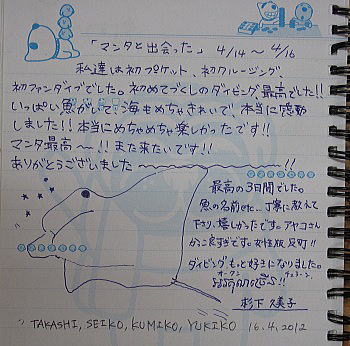 「マンタと出会った」 4/14 〜 4/16
私達は初プケット、初クルージング、
初ファンダイブでした。初めてづくしのダイビング最高でした!!
いっぱい魚がいて、海もめちゃきれいで、本当に感動
しました!! 本当にめちゃめちゃ楽しかったです!!
マンタ最高〜!! また来たいです!!
ありがとうございました〜!!
最高の3日間でした。
魚の名前とか… 丁寧に教えて
下さり、嬉しかったです。アヤコさん
かっこ良すぎです。女性版
ダイビングもっと好きになりました。
オークン
杉下 久美子
TAKASHI, SEIKO, KUMIKO, YUKIKO 16.4.2012